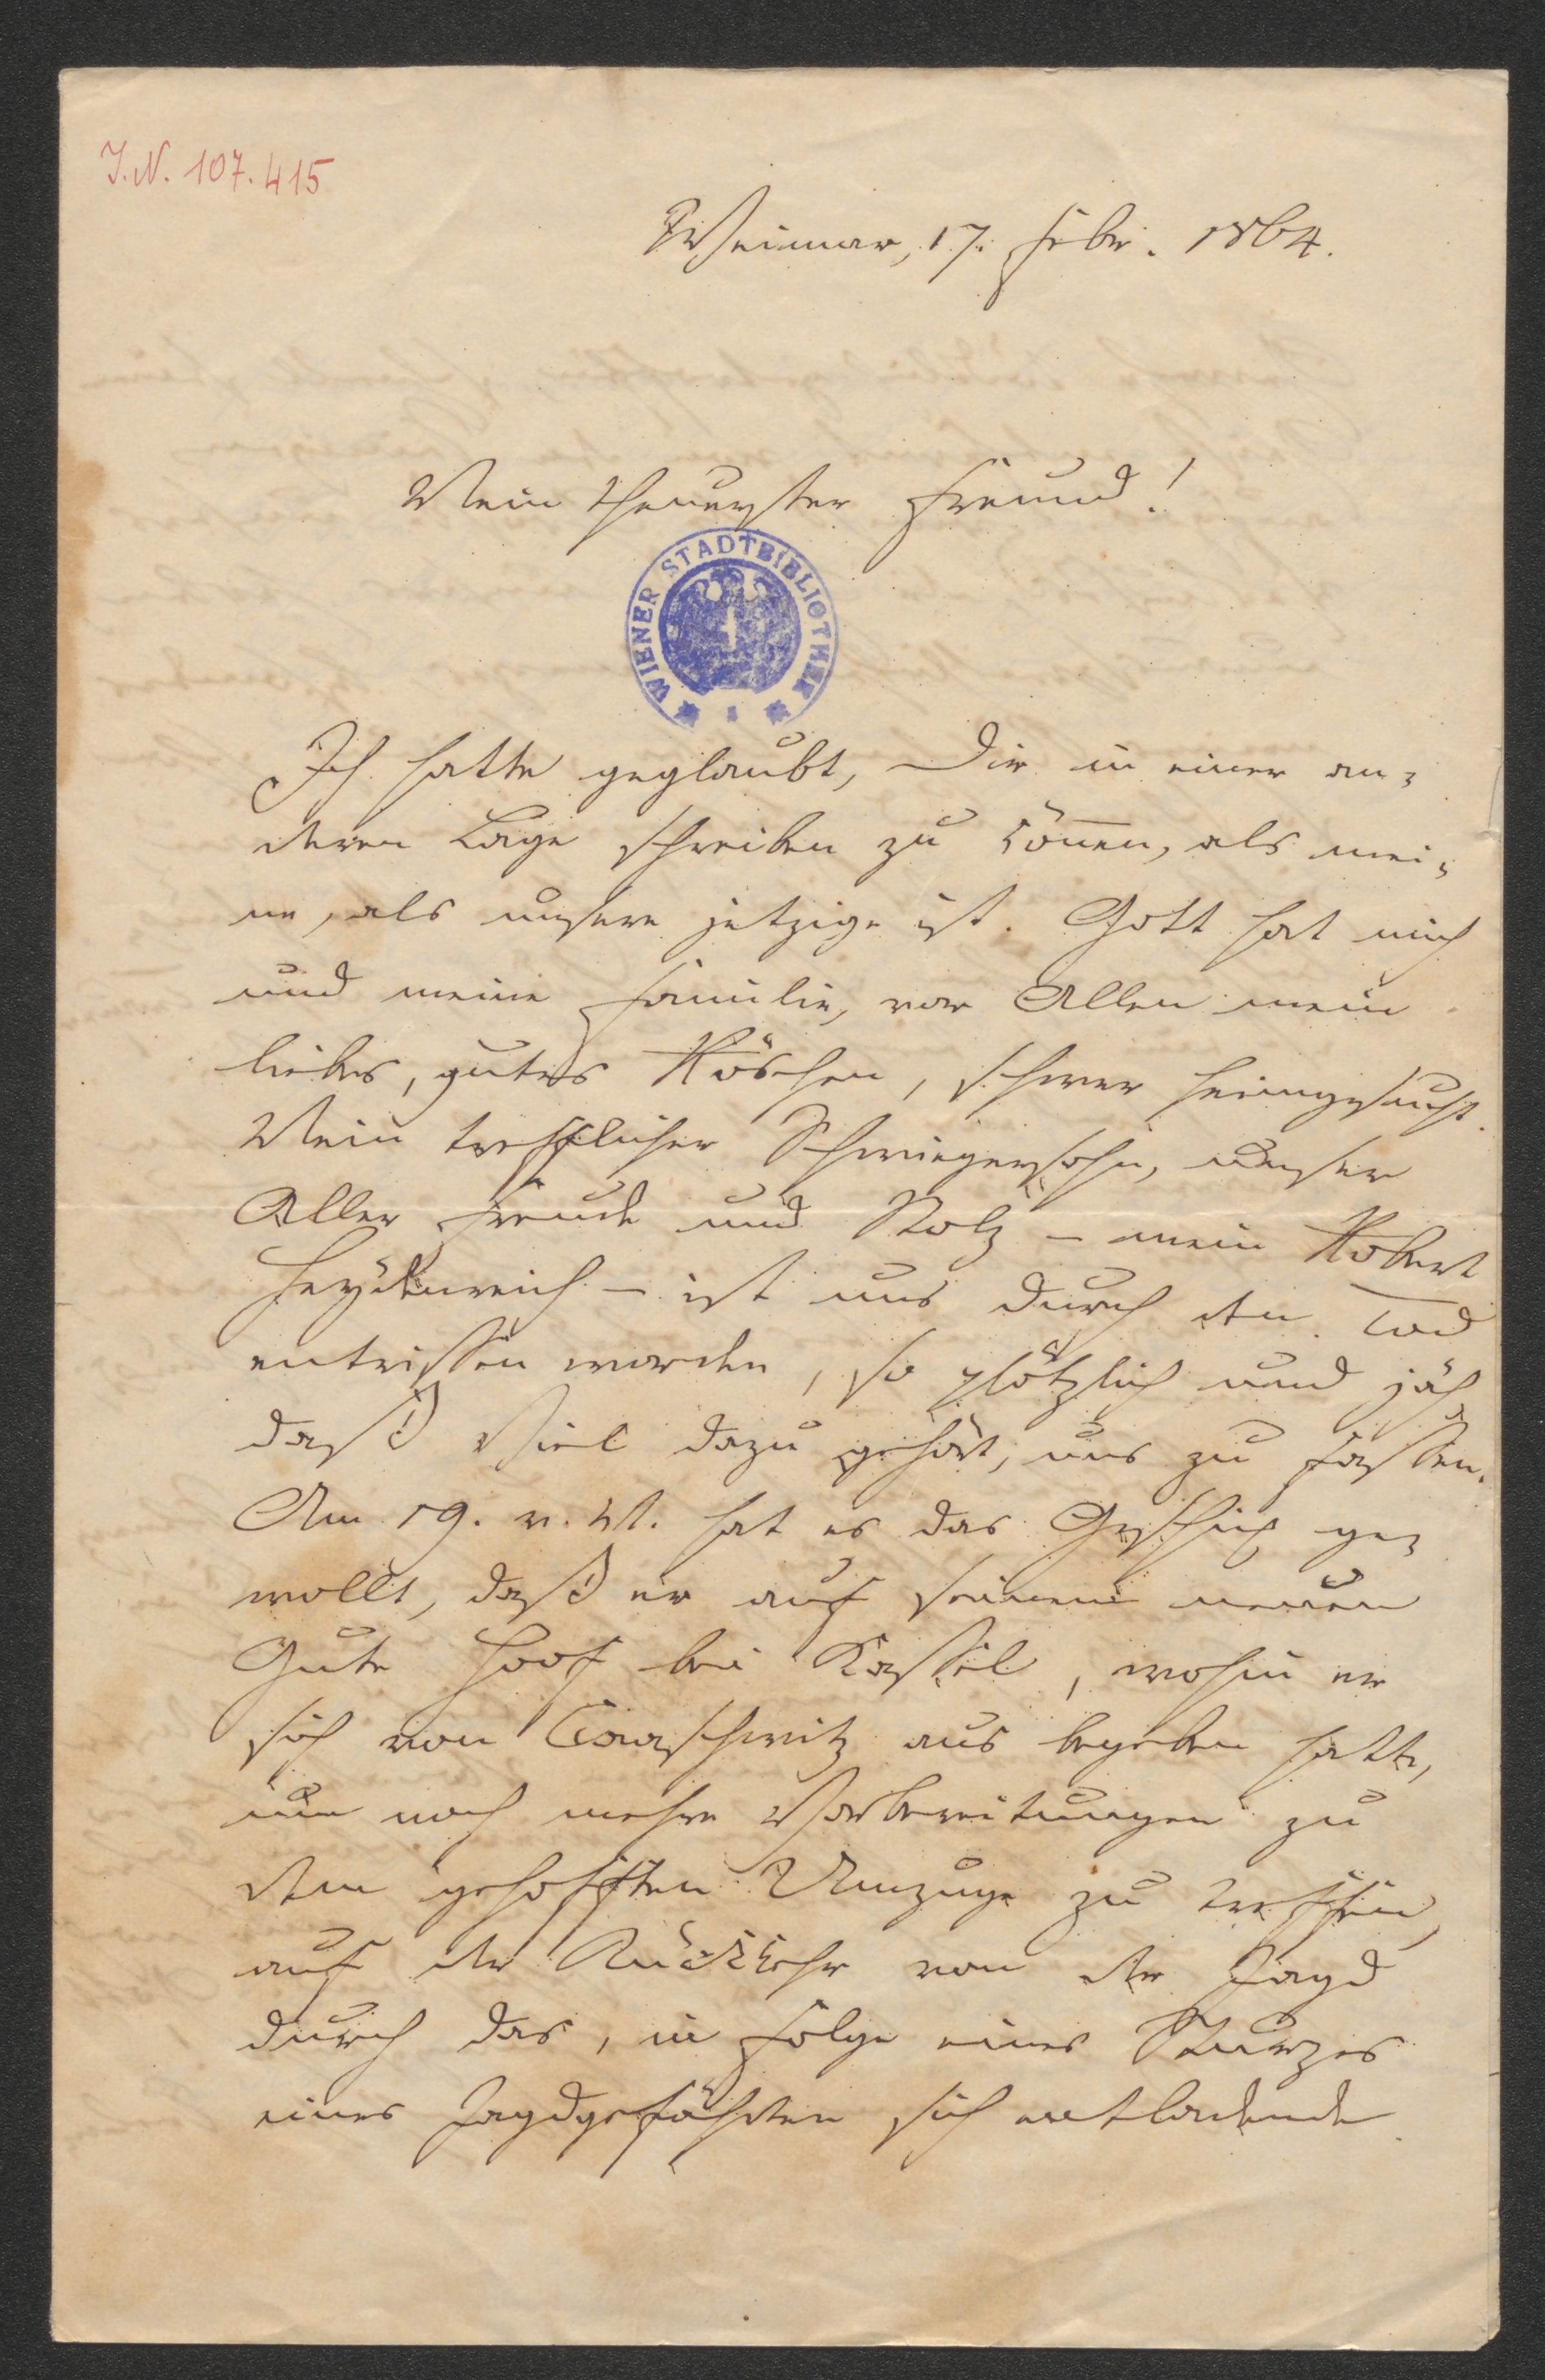 J.N. 107.415
Weimar, 17. Febr. 1864.
Mein theuerster Freund!
WIENER STADTBIBLIOTHEK
Ich hatte geglaubt, Dir in einer an-
deren Lage schreiben zu können, als mei-
ne, als unsere jetzige ist. Gott hat mich
und meine Familie, vor Allen mein
liebes, gutes Röschen, schwer heimgesucht.
Mein trefflicher Schwiegersohn, unser
Aller Freude und Stolz – mein Robert
Heydenreich – ist uns durch den Tod
entrissen worden, so plötzlich und jäh,
daß Viel dazu gehört, uns zu fassen.
Am 19. v. M. hat es das Geschick ge-
wollt, daß er auf seinem neuen
Gute Hoof bei Kassel, wohin er
sich von aus begeben hatte,
um noch mehre Vorbereitungen zu
dem gehofften Umzuge zu treffen,
auf der Rückkehr von der Jagd
durch das, in Folge eines Sturzes
eines Jagdgefährten sich entladende